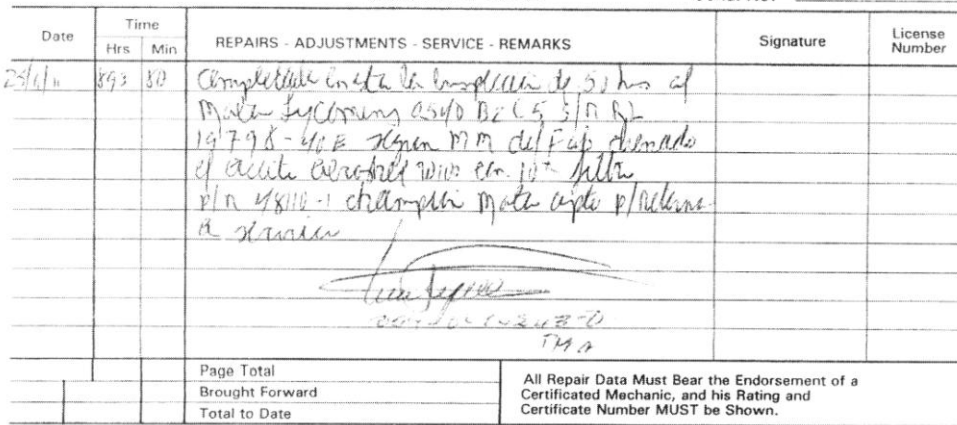 Date
Time
Hrs
Min
REPAIRS - ADJUSTMENTS - SERVICE - REMARKS
Signature
License
Number
893 80
Completada en esta la inspeccion de 50 hrs al
Motor Lycoming O540 B2C5 S/N RL
19798-40E segun MM del Fab drenado
el aceite aeroshell con filtro
P/N 48110-1 champion motor apto p/retorno
a servicio
TMA
Page Total
Brought Forward
Total to Date
All Repair Data Must Bear the Endorsement of a
Certificated Mechanic, and his Rating and
Certificate Number MUST be Shown.